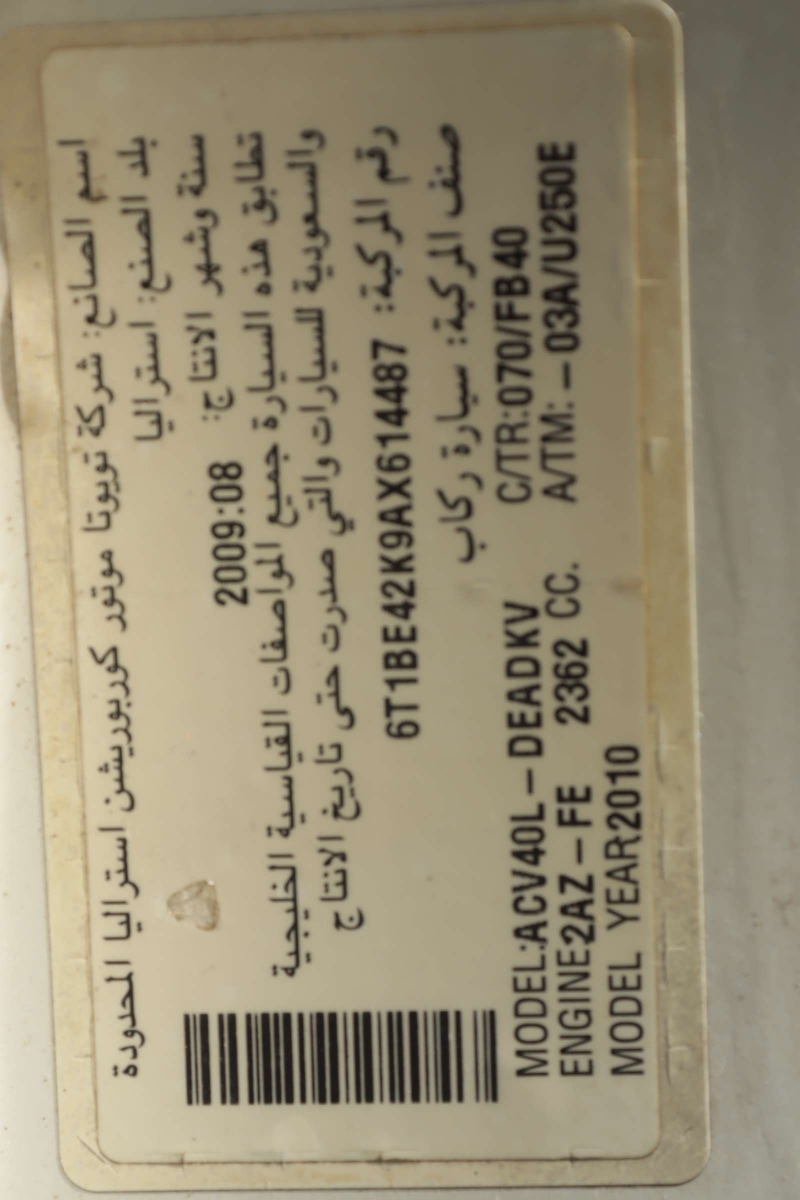 اسم الصانع: شركة تويوتا موتور كوربوريشن استراليا المحدودة
بلد الصنع: استراليا
سنة وشهر الانتاج: 2009:08
تطابق هذه السيارة جميع المواصفات القياسية الخليجية
والسعودية للسيارات والتي صدرت حتى تاريخ الانتاج
رقم المركبة: 6T1BE42K9AX614487
صنف المركبة: سيارة ركاب
MODEL:ACV40L-DEADKV C/TR:070/FB40
ENGINE2AZ-FE 2362 CC. A/TM:-03A/U250E
MODEL YEAR2010